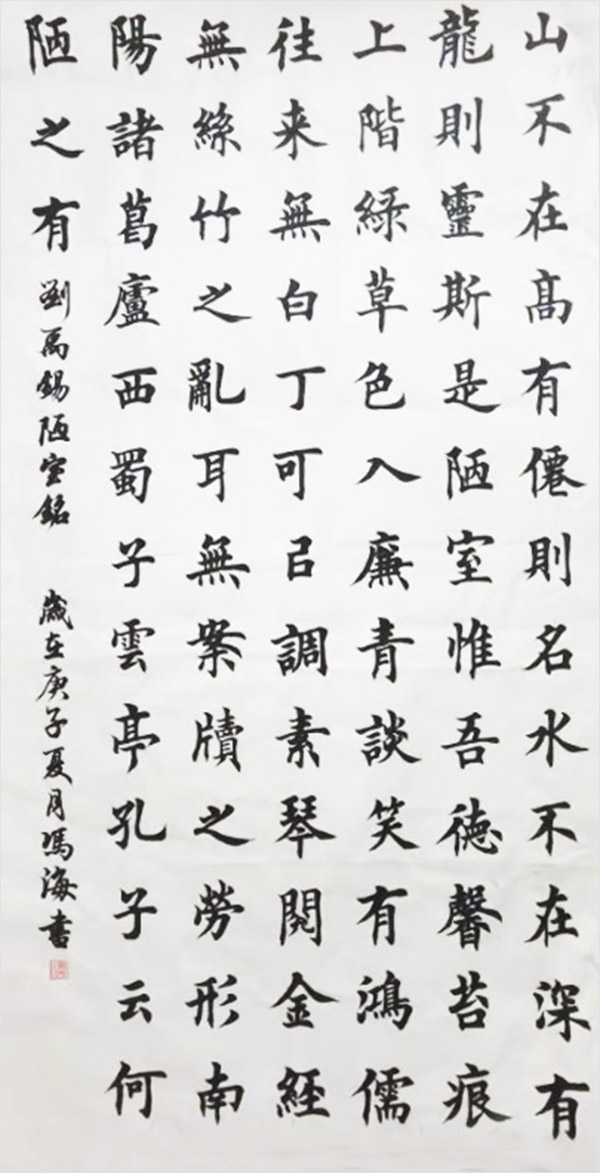 山不在高有僊則名水不在深有
龍則靈斯是陋室惟吾德馨苔痕
上階綠草色入廉青談笑有鴻儒
往来無白丁可㠯調素琴閱金經
無絲竹之亂耳無案牘之勞形南
陽諸葛廬西蜀子雲亭孔子云何
陋之有 劉禹錫陋室銘 歲在庚子夏月馮海書